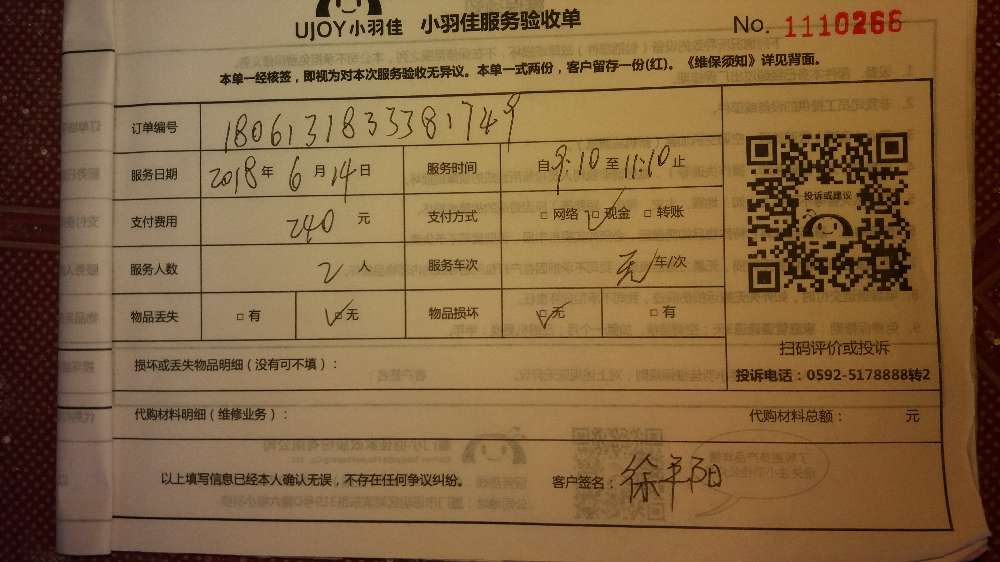 UJOY小羽佳 小羽佳服务验收单 No. 1110266
本单一经核签，即视为对本次服务验收无异议。本单一式两份，客户留存一份(红)。《维保须知》详见背面。
订单编号 1806131833381749
服务日期 2018年6月14日 服务时间 自9:10至11:10止
支付费用 240元 支付方式 □网络 □现金 □转账
服务人数 2人 服务车次 无车/次
物品丢失 □有 □无 物品损坏 □无 □有
投诉或建议
扫码评价或投诉
损坏或丢失物品明细（没有可不填）：
投诉电话：0592-5178888转2
代购材料明细（维修业务）： 代购材料总额： 元
以上填写信息已经本人确认无误，不存在任何争议纠纷。 客户签名：徐平阳